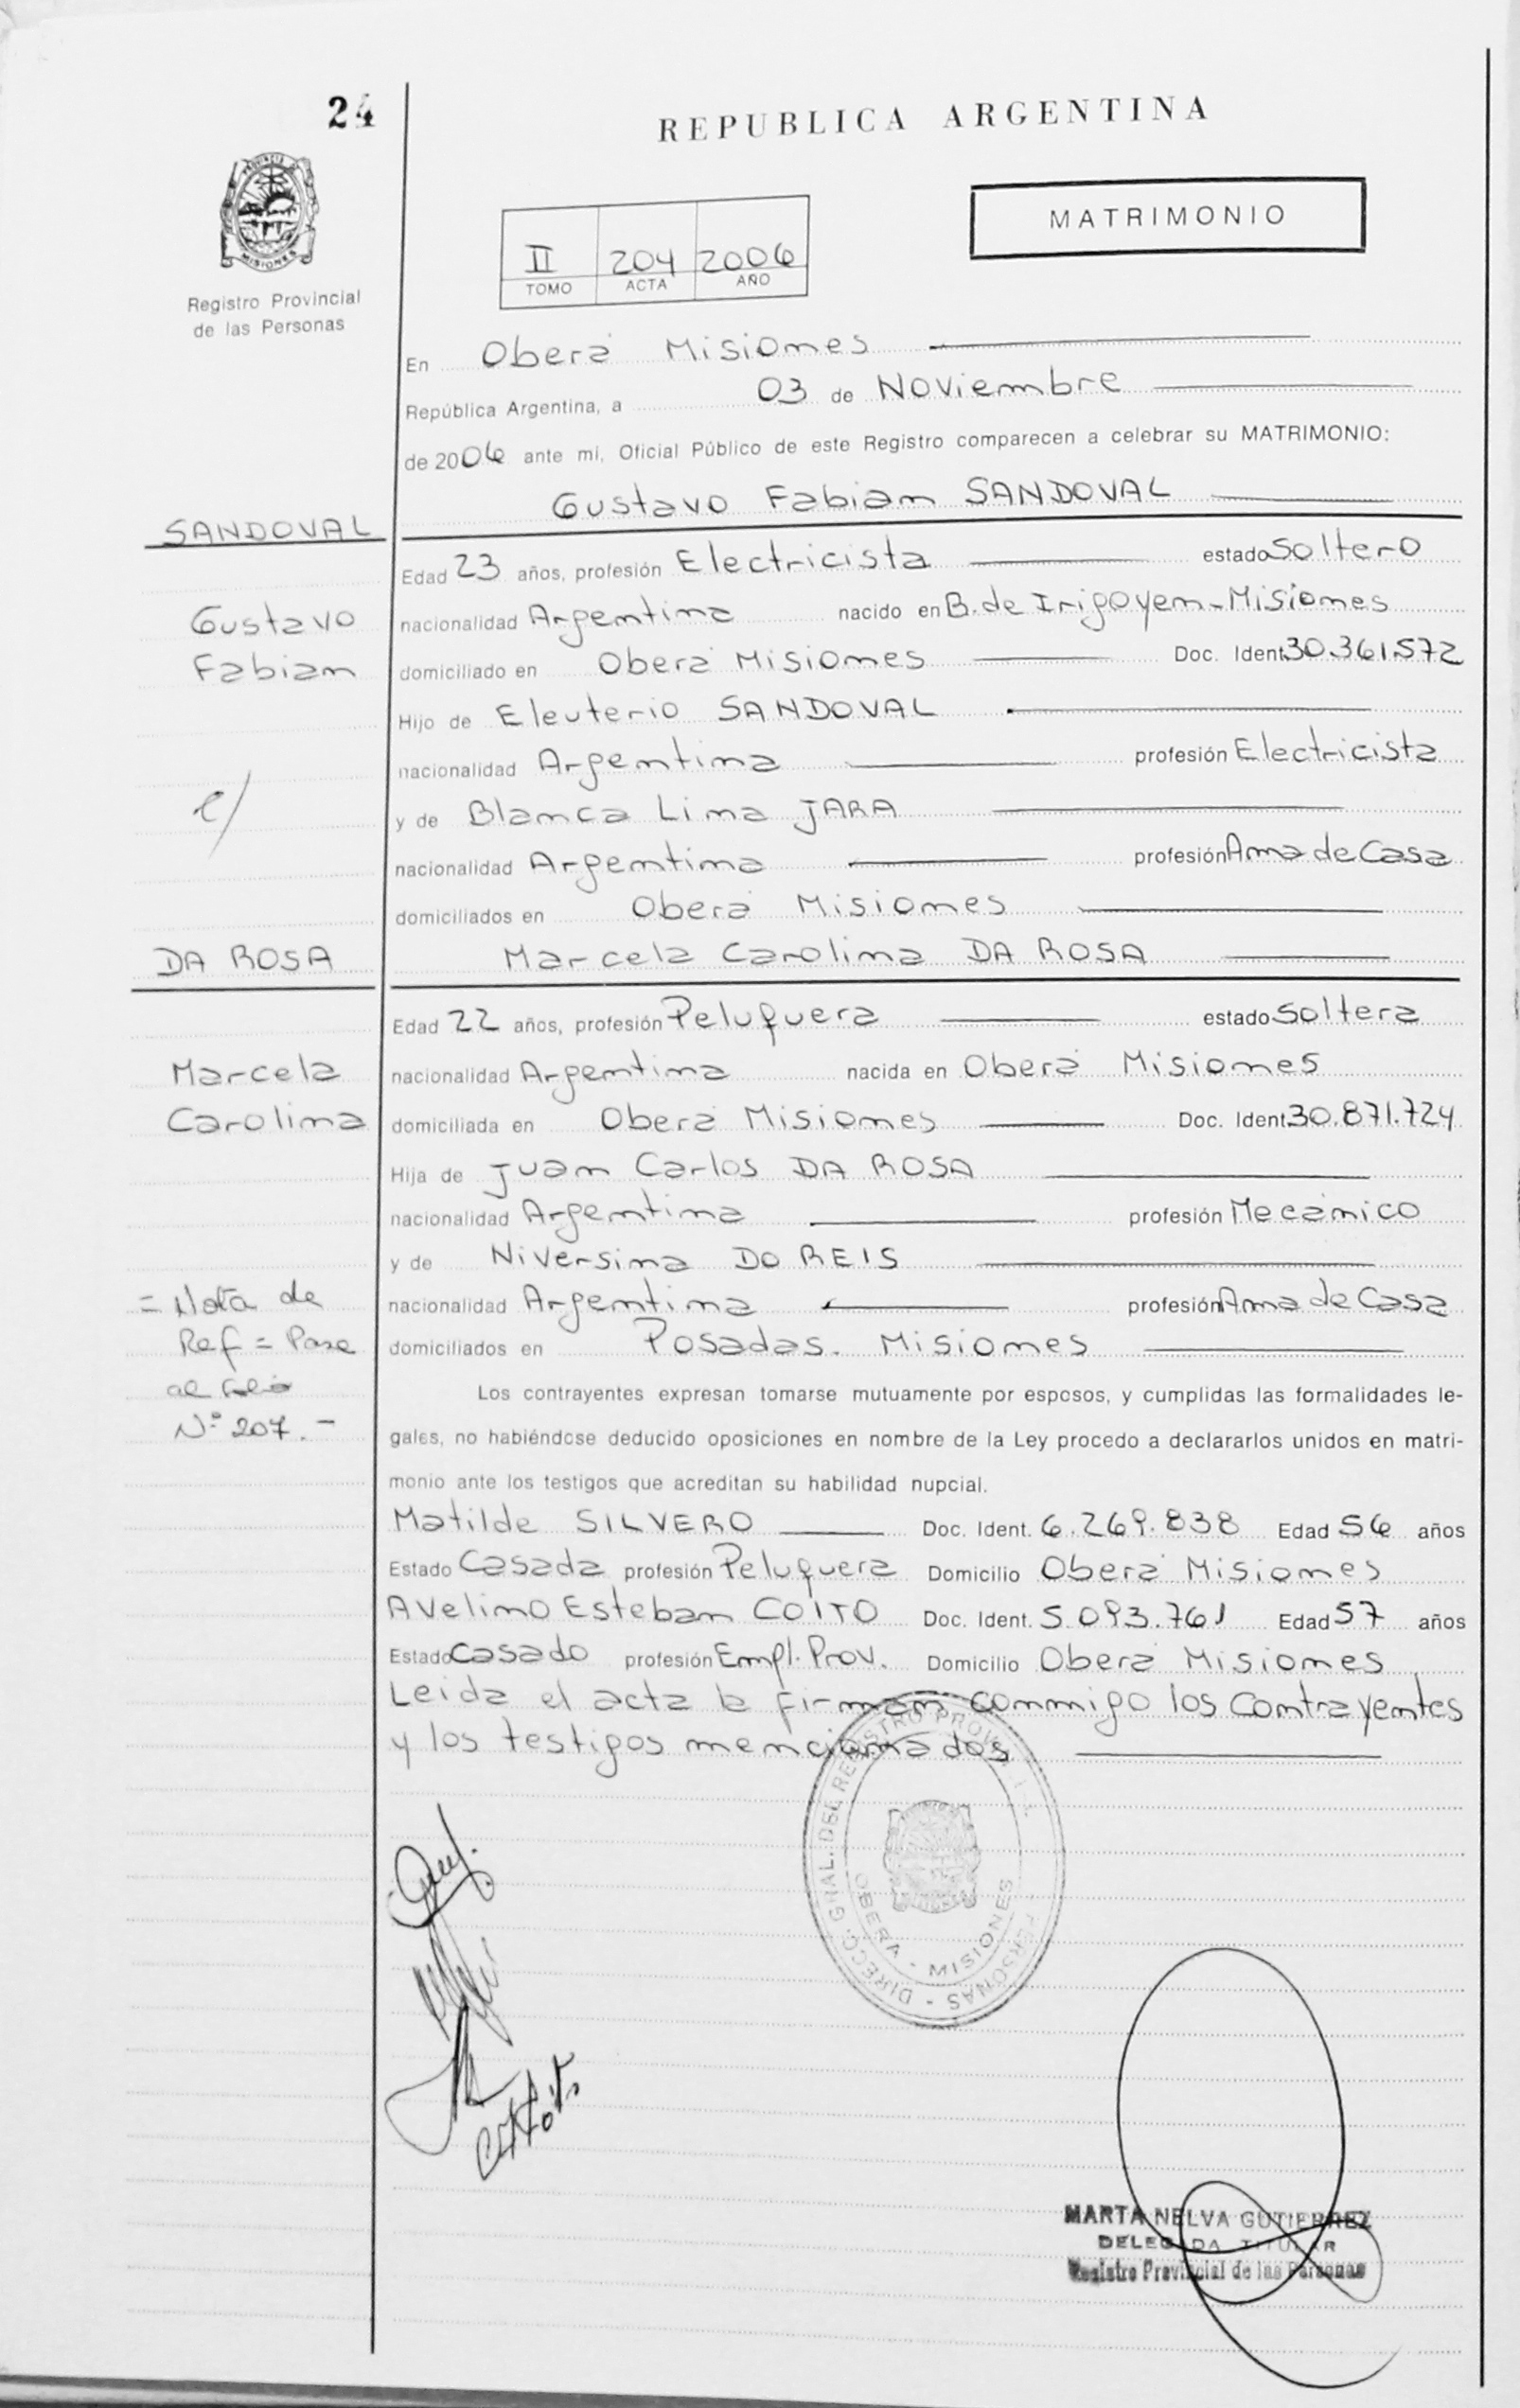 24
REPUBLICA ARGENTINA
MATRIMONIO
PROVINCIA
MISIONES
Registro Provincial
de las Personas
II 204 2006
TOMO ACTA AÑO
En Oberá Misiones
República Argentina, a 03 de Noviembre
de 2006 ante mi, Oficial Público de este Registro comparecen a celebrar su MATRIMONIO:
Gustavo Fabian SANDOVAL
SANDOVAL
Edad 23 años, profesión Electricista estado Soltero
Gustavo
nacionalidad Argentina nacido en B. de Irigoyen - Misiones
Fabian
domiciliado en Oberá Misiones Doc. Ident. 30.361.572
Hijo de Eleuterio SANDOVAL
nacionalidad Argentina profesión Electricista
c/
y de Blanca Lina JARA
nacionalidad Argentina profesión Ama de Casa
domiciliados en Oberá Misiones
DA ROSA
Marcela Carolina DA ROSA
Edad 22 años, profesión Peluquera estado Soltera
Marcela
nacionalidad Argentina nacida en Oberá Misiones
Carolina
domiciliada en Oberá Misiones Doc. Ident. 30.871.724
Hija de Juan Carlos DA ROSA
nacionalidad Argentina profesión Mecánico
y de Niversina DO REIS
= Nota de
nacionalidad Argentina profesión Ama de Casa
Ref = Pase
domiciliados en Posadas. Misiones
al folio
Nº 207. -
Los contrayentes expresan tomarse mutuamente por esposos, y cumplidas las formalidades le-
gales, no habiéndose deducido oposiciones en nombre de la Ley procedo a declararlos unidos en matri-
monio ante los testigos que acreditan su habilidad nupcial.
Matilde SILVERO Doc. Ident. 6.269.838 Edad 56 años
Estado Casada profesión Peluquera Domicilio Oberá Misiones
Avelino Esteban COITO Doc. Ident. 5.093.761 Edad 57 años
Estado Casado profesión Empl. Prov. Domicilio Oberá Misiones
Leida el acta la firman conmigo los contrayentes
y los testigos mencionados
DIRECC. GRAL. DEL REGISTRO PROVINCIAL PERSONAS
OBERA - MISIONES
MARTA NELVA GUTIERREZ
DELEGADA TITULAR
Registro Provincial de las Personas